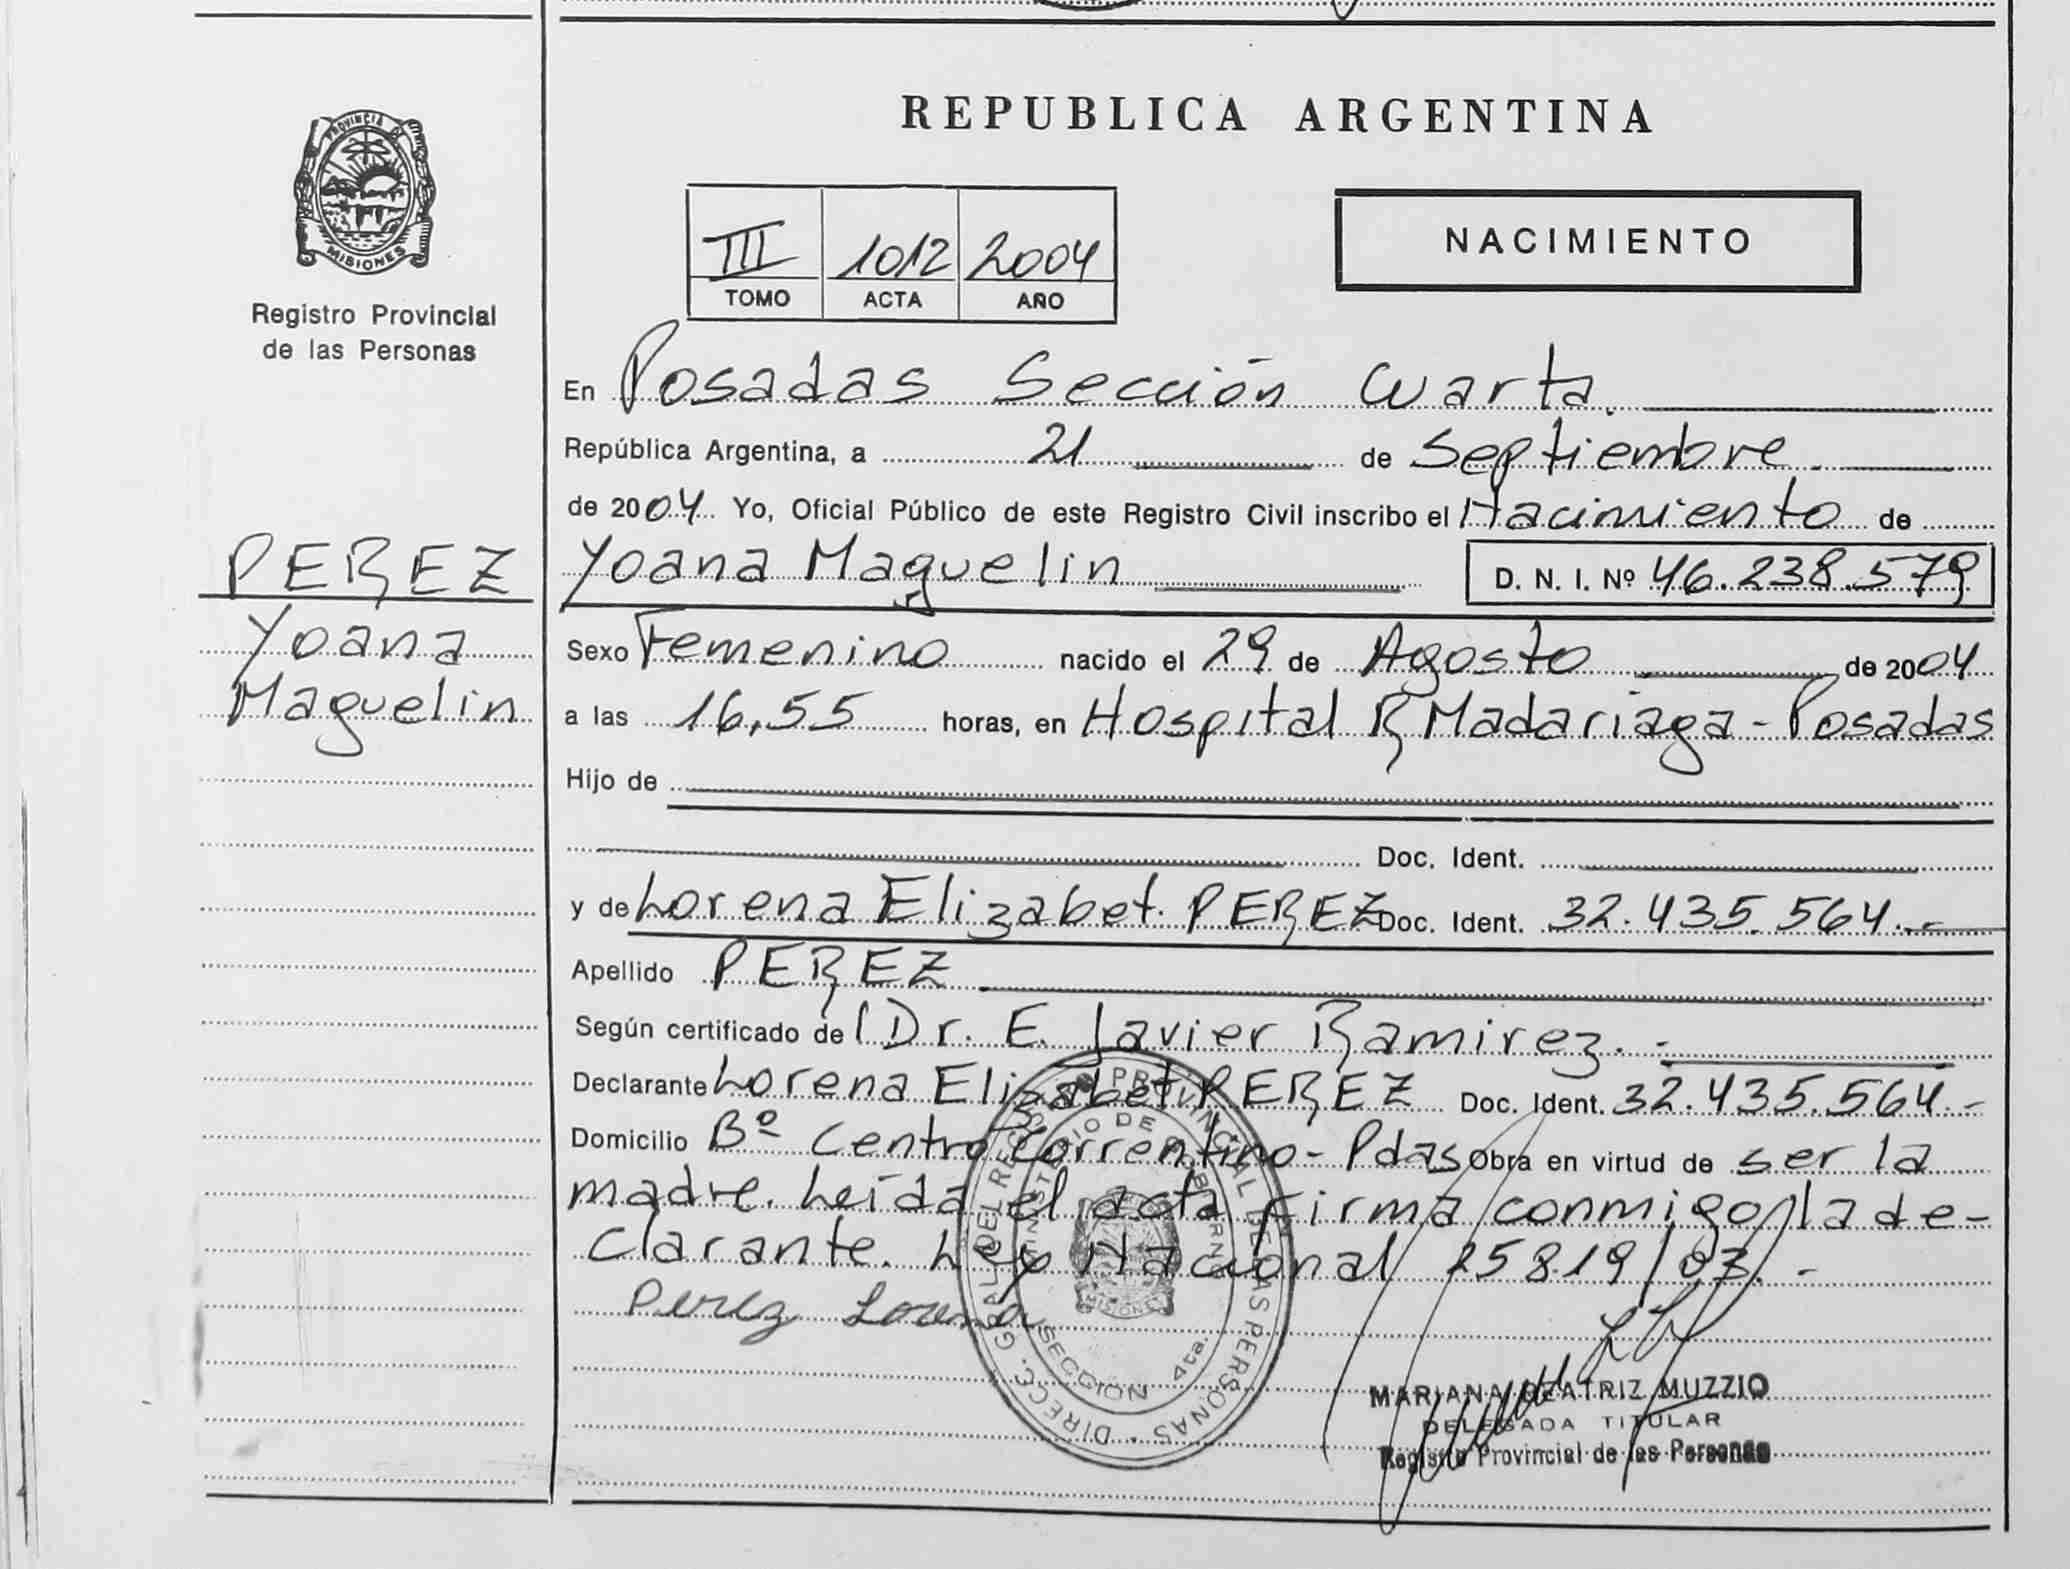 PROVINCIA DE
MISIONES
Registro Provincial
de las Personas
PEREZ
Yoana
Maguelin
REPUBLICA ARGENTINA
III 1012 2004
TOMO ACTA AÑO
NACIMIENTO
En Posadas Sección Cuarta.
República Argentina, a 21 de Septiembre.
de 2004 Yo, Oficial Público de este Registro Civil inscribo el Nacimiento de
Yoana Maguelin D. N. I. Nº 46.238.579
Sexo Femenino nacido el 29 de Agosto de 2004
a las 16,55 horas, en Hospital R Madariaga - Posadas
Hijo de
Doc. Ident.
y de Lorena Elizabet. PEREZ Doc. Ident. 32.435.564.-
Apellido PEREZ
Según certificado de Dr. E. Javier Ramirez. -
Declarante Lorena Elizabet PEREZ Doc. Ident. 32.435.564.-
Domicilio Bº Centro Correntino - Pdas Obra en virtud de ser la
madre. Leída el acta firma conmigo la de-
clarante. Ley Nacional 25819/03. -
Perez Lorena
DIRECC. GRAL. DEL REGISTRO PROVINCIAL DE LAS PERSONAS
MINISTERIO DE GOBIERNO
MISIONES
SECCION 4ta.
MARIANA BEATRIZ MUZZIO
DELEGADA TITULAR
Registro Provincial de las Personas